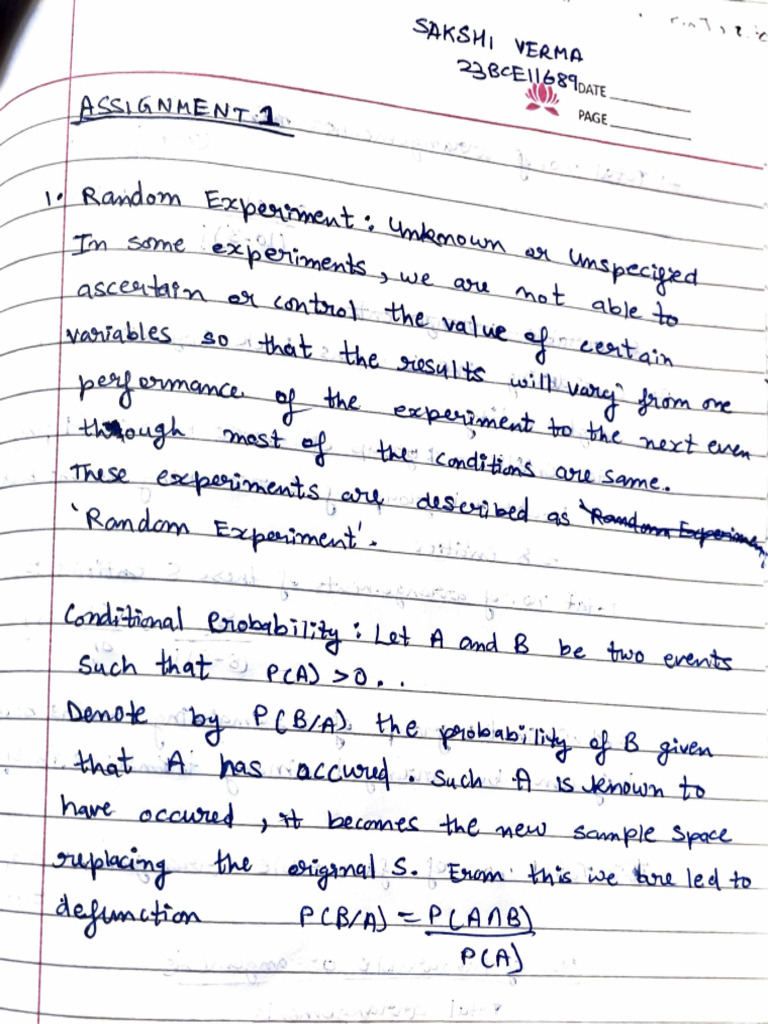 SAKSHI VERMA
23BCE11689
DATE
PAGE
ASSIGNMENT 1
1. Random Experiment : Unknown or Unspecified
In some experiments, we are not able to
ascertain or control the value of certain
variables so that the results will vary from one
performance of the experiment to the next even
though most of the conditions are same.
These experiments are described as 'Random Experiment'
'Random Experiment'.
Conditional Probability : Let A and B be two events
Such that P(A) >0. .
Denote by P(B/A) the probability of B given
that A has accured. Such A is known to
have occured, it becomes the new sample space
replacing the original S. From this we are led to
defunction P(B/A) = P(A∩B)
P(A)